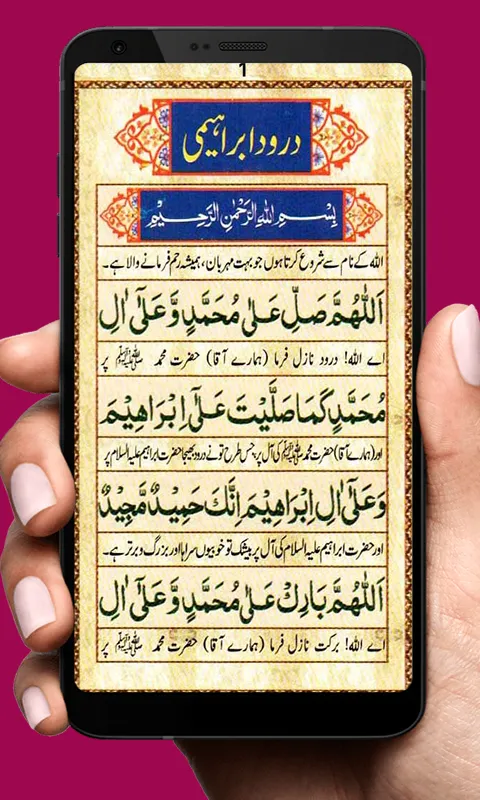 1
درود ابراہیمی
بِسْمِ اللهِ الرَّحْمٰنِ الرَّحِيْمِ
الله کے نام سے شروع کرتا ہوں جو بہت مہربان ، ہمیشہ رحم فرمانے والا ہے۔
اَللّٰهُمَّ صَلِّ عَلٰى مُحَمَّدٍ وَّعَلٰٓى اٰلِ
اے الله! درود نازل فرما (ہمارے آقا) حضرت محمد ﷺ پر
مُحَمَّدٍ كَمَا صَلَّيْتَ عَلٰٓى اِبْرَاهِيْمَ
اور(ہمارے آقا)حضرت محمد ﷺ کی آل پر، جس طرح تو نے درود بھیجا حضرت ابراہیم علیہ السلام پر
وَعَلٰٓى اٰلِ اِبْرَاهِيْمَ اِنَّكَ حَمِيْدٌ مَّجِيْدٌ
اور حضرت ابراہیم علیہ السلام کی آل پر بیشک تو خوبیوں سراہا اور بزرگ و برتر ہے۔
اَللّٰهُمَّ بَارِكْ عَلٰى مُحَمَّدٍ وَّعَلٰٓى اٰلِ
اے الله! برکت نازل فرما (ہمارے آقا) حضرت محمد ﷺ پر